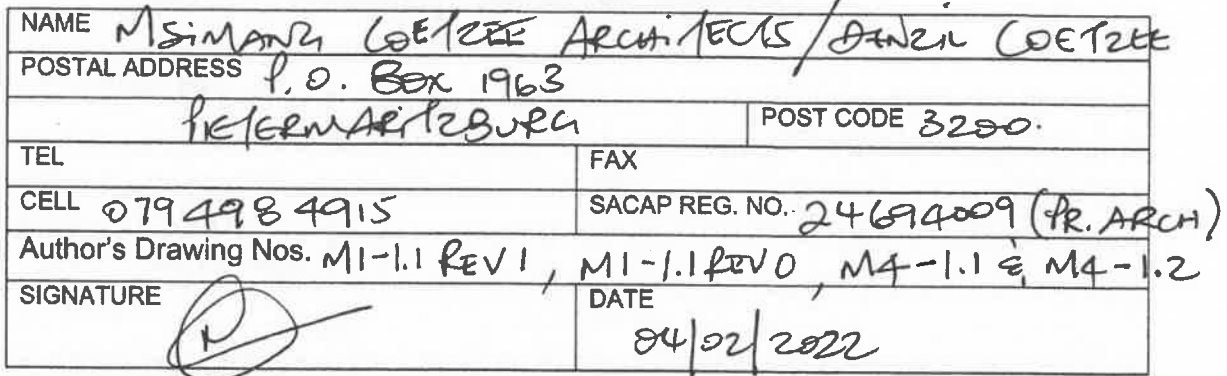 NAME MSIMANG COETZEE ARCHITECTS / DENZIL COETZEE
POSTAL ADDRESS P.O. BOX 1963
PIETERMARITZBURG POST CODE 3200.
TEL FAX
CELL 079 498 4915 SACAP REG. NO. 24694009 (PR. ARCH)
Author's Drawing Nos. M1-1.1 REV 1, M1-1.1 REV 0, M4-1.1 & M4-1.2
SIGNATURE DATE
04/02/2022